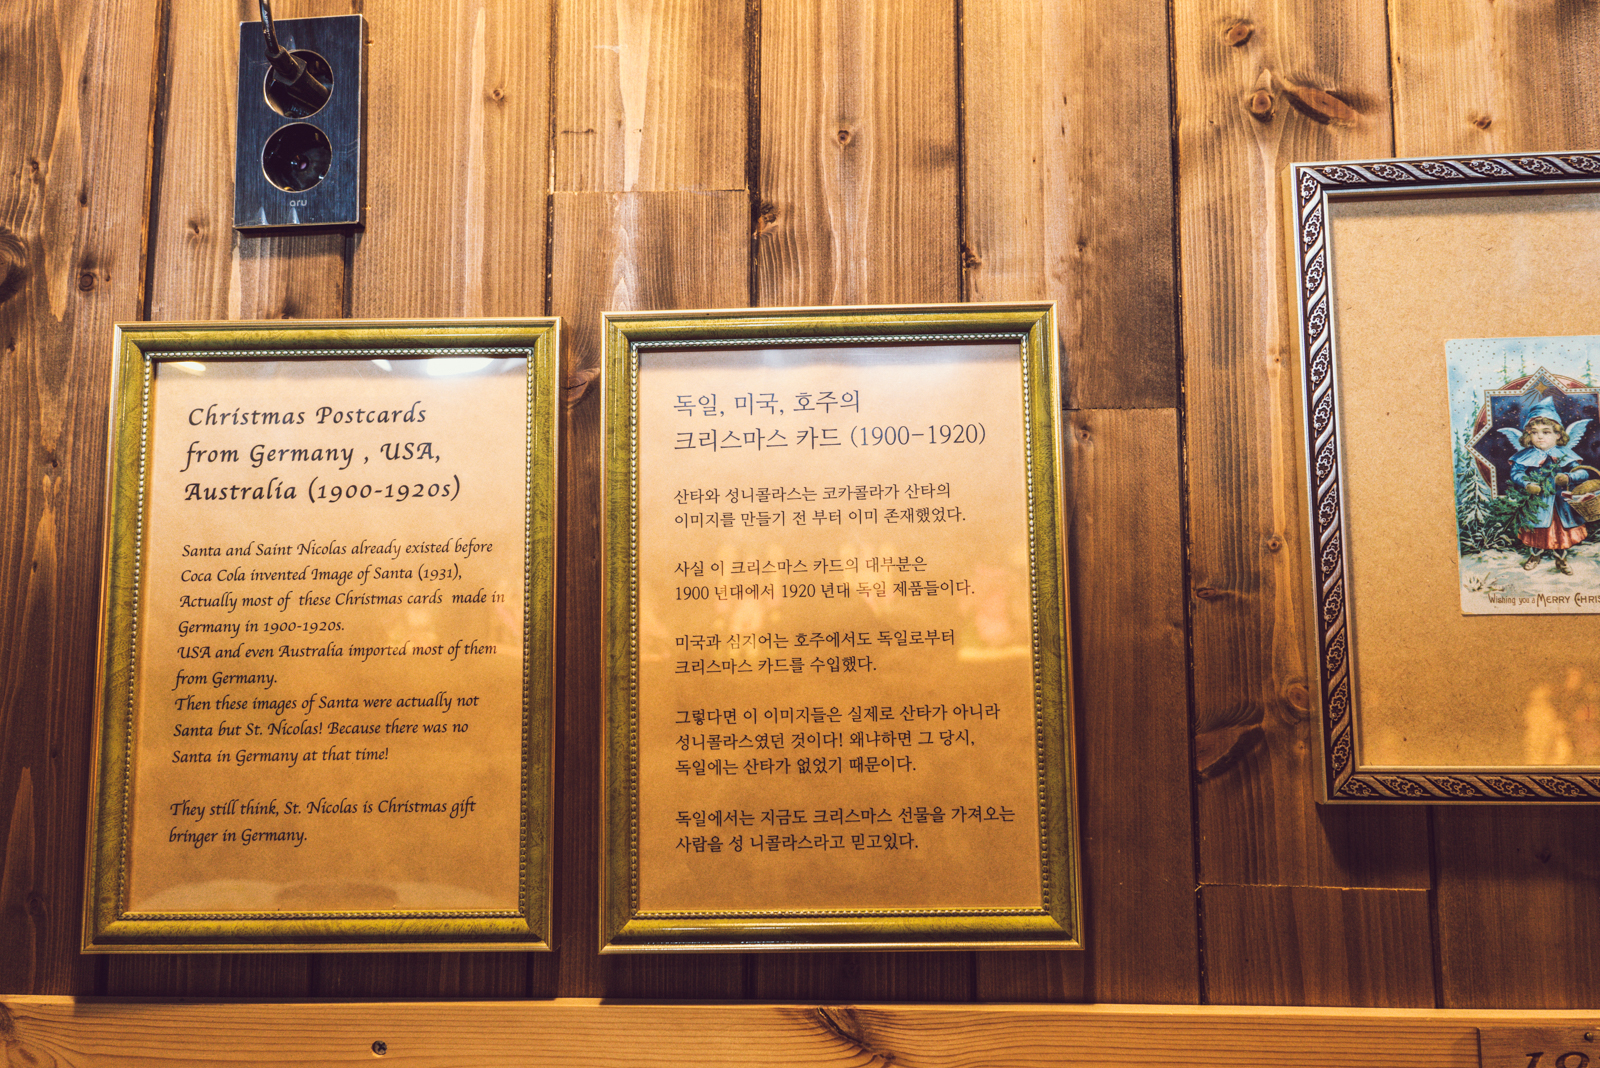 aru
Christmas Postcards
from Germany , USA,
Australia (1900-1920s)
Santa and Saint Nicolas already existed before
Coca Cola invented Image of Santa (1931),
Actually most of these Christmas cards made in
Germany in 1900-1920s.
USA and even Australia imported most of them
from Germany.
Then these images of Santa were actually not
Santa but St. Nicolas! Because there was no
Santa in Germany at that time!
They still think, St. Nicolas is Christmas gift
bringer in Germany.
독일, 미국, 호주의
크리스마스 카드 (1900-1920)
산타와 성니콜라스는 코카콜라가 산타의
이미지를 만들기 전 부터 이미 존재했었다.
사실 이 크리스마스 카드의 대부분은
1900 년대에서 1920 년대 독일 제품들이다.
미국과 심지어는 호주에서도 독일로부터
크리스마스 카드를 수입했다.
그렇다면 이 이미지들은 실제로 산타가 아니라
성니콜라스였던 것이다! 왜냐하면 그 당시,
독일에는 산타가 없었기 때문이다.
독일에서는 지금도 크리스마스 선물을 가져오는
사람을 성 니콜라스라고 믿고있다.
Wishing you a MERRY CHRIS